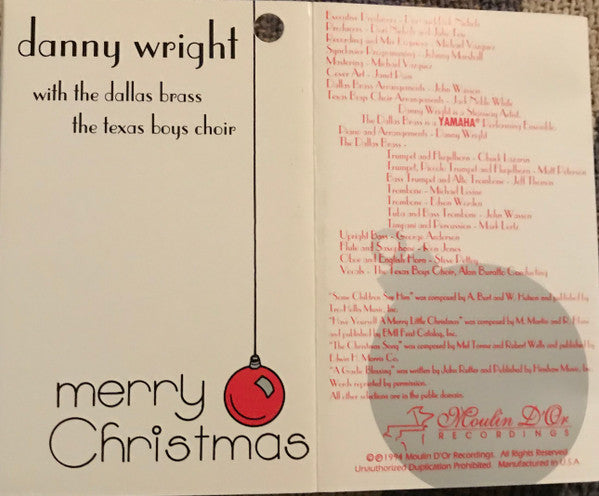 danny wright
with the dallas brass
the texas boys choir
merry
Christmas
Executive Producers - Dori and Dick Nichols
Producers - Dori Nichols and John
Recording and Mix Engineer - Michael Vazquez
Synclavier Programming - Johnny Marshall
Mastering - Michael Vazquez
Cover Art - Janet
Dallas Brass Arrangements - John Wasson
Texas Boys Choir Arrangements - Jack Noble White
Danny Wright is a Steinway Artist.
The Dallas Brass is a YAMAHA® Performing Ensemble.
Piano and Arrangements - Danny Wright
The Dallas Brass -
Trumpet and Flugelhorn - Chuck Lazarus
Trumpet, Piccolo Trumpet and Flugelhorn - Matt Peterson
Bass Trumpet and Alto Trombone - Jeff Thomas
Trombone - Michael Levine
Trombone - Edson Worden
Tuba and Bass Trombone - John Wasson
Timpani and Percussion - Mark Lortz
Upright Bass - George Anderson
Flute and Saxophone - Ken Jones
Oboe and English Horn - Steve
Vocals - The Texas Boys Choir, Alan Buratto Conducting
"Some Children See Him" was composed by A. Burt and W. Hutson and published by
Tro-Hollis Music, Inc.
"Have Yourself A Merry Little Christmas" was composed by M. Martin and R. Blane
and published by EMI Feist Catalog, Inc.
"The Christmas Song" was composed by Mel Torme and Robert Wells and published by
Edwin H. Morris Co.
"A Gaelic Blessing" was written by John Rutter and Published by Hinshaw Music, Inc.
Words reprinted by permission.
All other selections are in the public domain.
Moulin D'Or
RECORDINGS
©℗1994 Moulin D'Or Recordings. All Rights Reserved.
Unauthorized Duplication Prohibited. Manufactured in U.S.A.